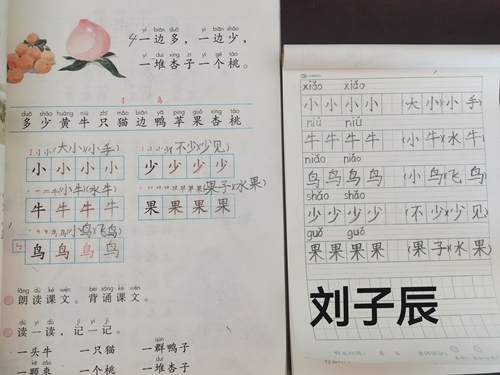 yì biān duō yì biān shǎo
4一边多，一边少，
yì duī xìng zi yí gè táo
一堆杏子一个桃。
duō shǎo huáng niú zhī māo biān yā píng guǒ xìng táo
多少黄牛只猫边鸭苹果杏桃
(大小)(小手) (不少)(少见)
小小小小 少少少少
(小牛)(水牛) (果子)(水果)
牛牛牛牛 果果果果
(小鸟)(飞鸟)
鸟鸟鸟鸟
lǎng dú kè wén bèi sòng kè wén
朗读课文。背诵课文。
dú yi dú jì yi jì
读一读，记一记。
qún
一头牛 一只猫 一群鸭子
kē zǎo
一颗枣 一个桃 一堆杏子
xiǎo xiǎo
小小小小 (大小)(小手)
niú niú
牛牛牛牛 (小牛)(水牛)
niǎo niǎo
鸟鸟鸟鸟 (小鸟)(飞鸟)
shǎo shǎo
少少少少 (不少)(少见)
guǒ guó
果果果果 (果子)(水果)
刘子辰